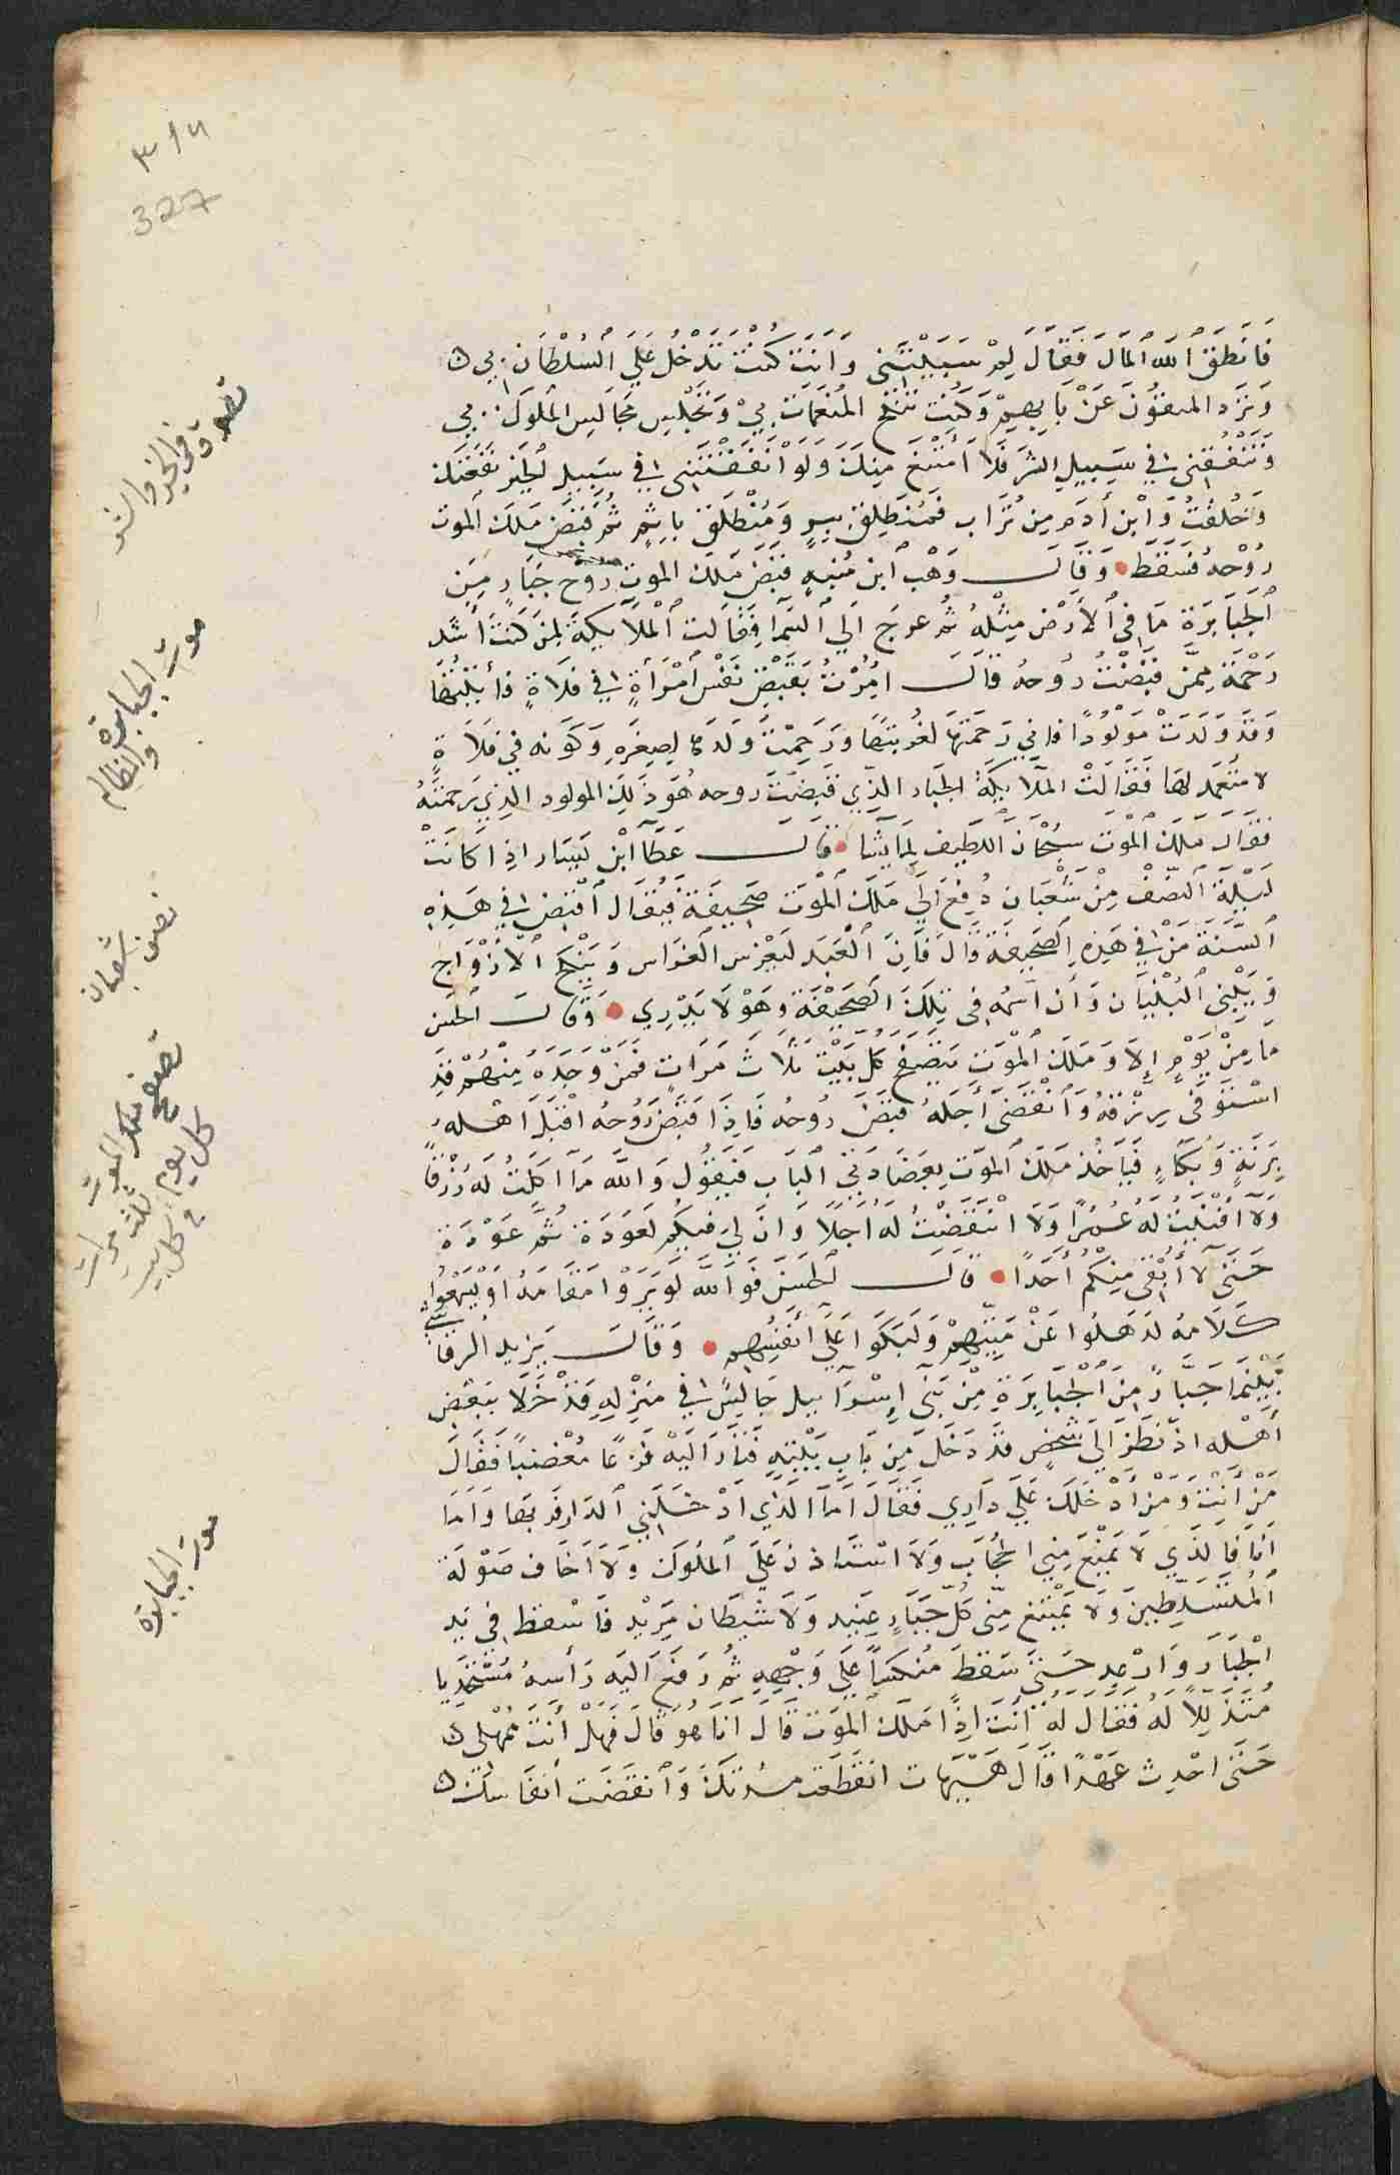 327
فانطق الله المال فقال لم سبيتني وانت كنت تدخل على السلطان بي
وترد المتقون عن بابهم وكنت تنكح المنعمات بي وتجلس مجالس الملوك بي
وتنفقني في سبيل الشر فلا امتنع منك ولو انفقتني في سبيل الخير نفعتك
وخلقت وابن أدم من تراب فمنطلق ببر ومنطلق باثم ثم قبض ملك الموت
روحه فسقط وقال وهب ابن منبه قبض ملك الموت روح جبار من
الجبابرة ما في الأرض مثله ثم عرج الي السما فقالت الملآيكة لمن كنت أشد
رحمة ممن قبضت روحه قال امرت بقبض نفس امرأة في فلاة فأتيتها
وقد ولدت مولودا فاني رحمتها لغربتها ورحمت ولدها لصغره وكونه في فلاة
لا متعهد لها فقالت الملآيكة الجبار الذي قبضت روحه هو ذلك المولود الذي رحمته
فقال ملك الموت سبحان اللطيف لما يشا قال عطآ ابن يسار اذا كانت
ليلة النصف من شعبان دفع الي ملك الموت صحيفة فيقال اقبض في هذه
السنة من في هذه الصحيفة قال فان العبد ليغرس الغراس وينكح الأزواج
ويبني البنيان وأن اسمه في تلك الصحيفة وهو لا يدري وقال الحسن
ما من يوم إلا وملك الموت يتصفح كل بيت ثلاث مرات فمن وجده منهم قد
استوفى رزقه وانقضى أجله قبض روحه فاذا قبض روحه اقبل اهله
برنة وبكاء فياخذ ملك الموت بعضادتي الباب فيقول والله مآ اكلت له رزقا
ولآ افنيت له عمرا ولا انتقضت له اجلا وان لي فيكم لعودة ثم عودة
حتى لآ أبقى منكم أحدا قال الحسن فوالله لو يروا مقامه او يسمعوا
كلامه لذهلوا عن ميتهم ولبكوا على أنفسهم وقال يزيد الرقاشي
بينما جبار من الجبابرة من بني إسرآييل جالس في منزله قد خلا ببعض
أهله اذ نظر الي شخص قد دخل من باب بيته فثار اليه فزعا مغضبا فقال
من أنت ومن أدخلك علي داري فقال اما الذي ادخلني الدار فربها واما
انا فالذي لا يمنع مني الحجاب ولا استاذن على الملوك ولا اخاف صولة
المتسلطين ولا يمتنع مني كل جبار عنيد ولا شيطان مريد فاسقط في يد
الجبار وارعد حتى سقط منكبا علي وجهه ثم رفع اليه رأسه مستجديا
متذللا له فقال له أنت اذا ملك الموت قال انا هو قال فهل أنت ممهلي
حتى احدث عهدا قال هيهات انقطعت مدتك وانقضت أنفاسك
في الخير والشر
موت الجبابرة
والظالم
نصف
شعبان
تصفح ملك الموت
كل يوم ثلث مرات
في كل بيت
موت الجبابرة